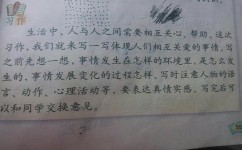 习作
生活中,人与人之间需要相互关心,帮助。这次
习作,我们就来写一写体现人们相互关爱的事情,写
之前先想一想,事情发生在怎样的环境里,是怎么发
生的,事情发展变化的过程怎样。写时注意人物的语
言、动作、心理活动等,要表达真情实感。写完后可
以和同学交换意见。